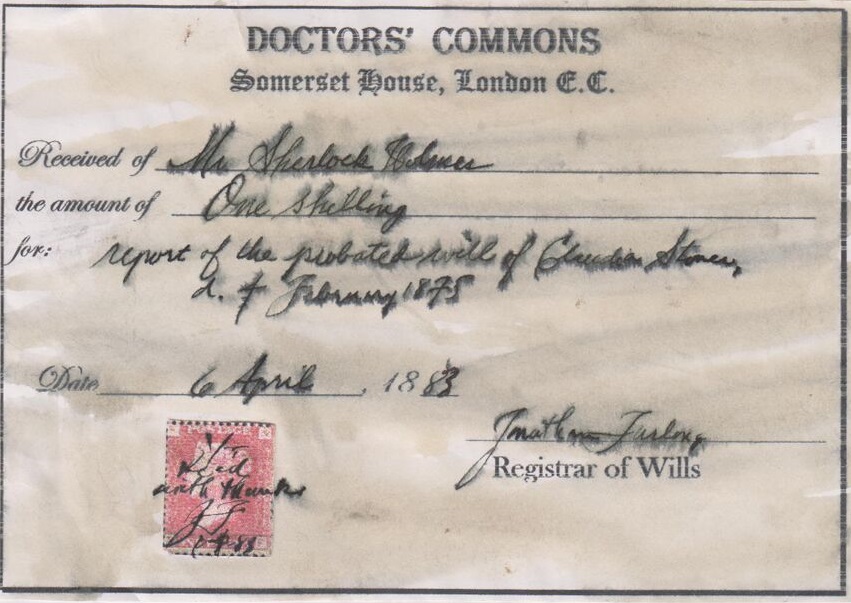 DOCTORS' COMMONS
Somerset House, London E.C.
Received of Mr Sherlock Holmes
the amount of One Shilling
for: report of the probated will of Stoner,
d. 4 February 1875
Date 6 April, 1883
Registrar of Wills
with thanks